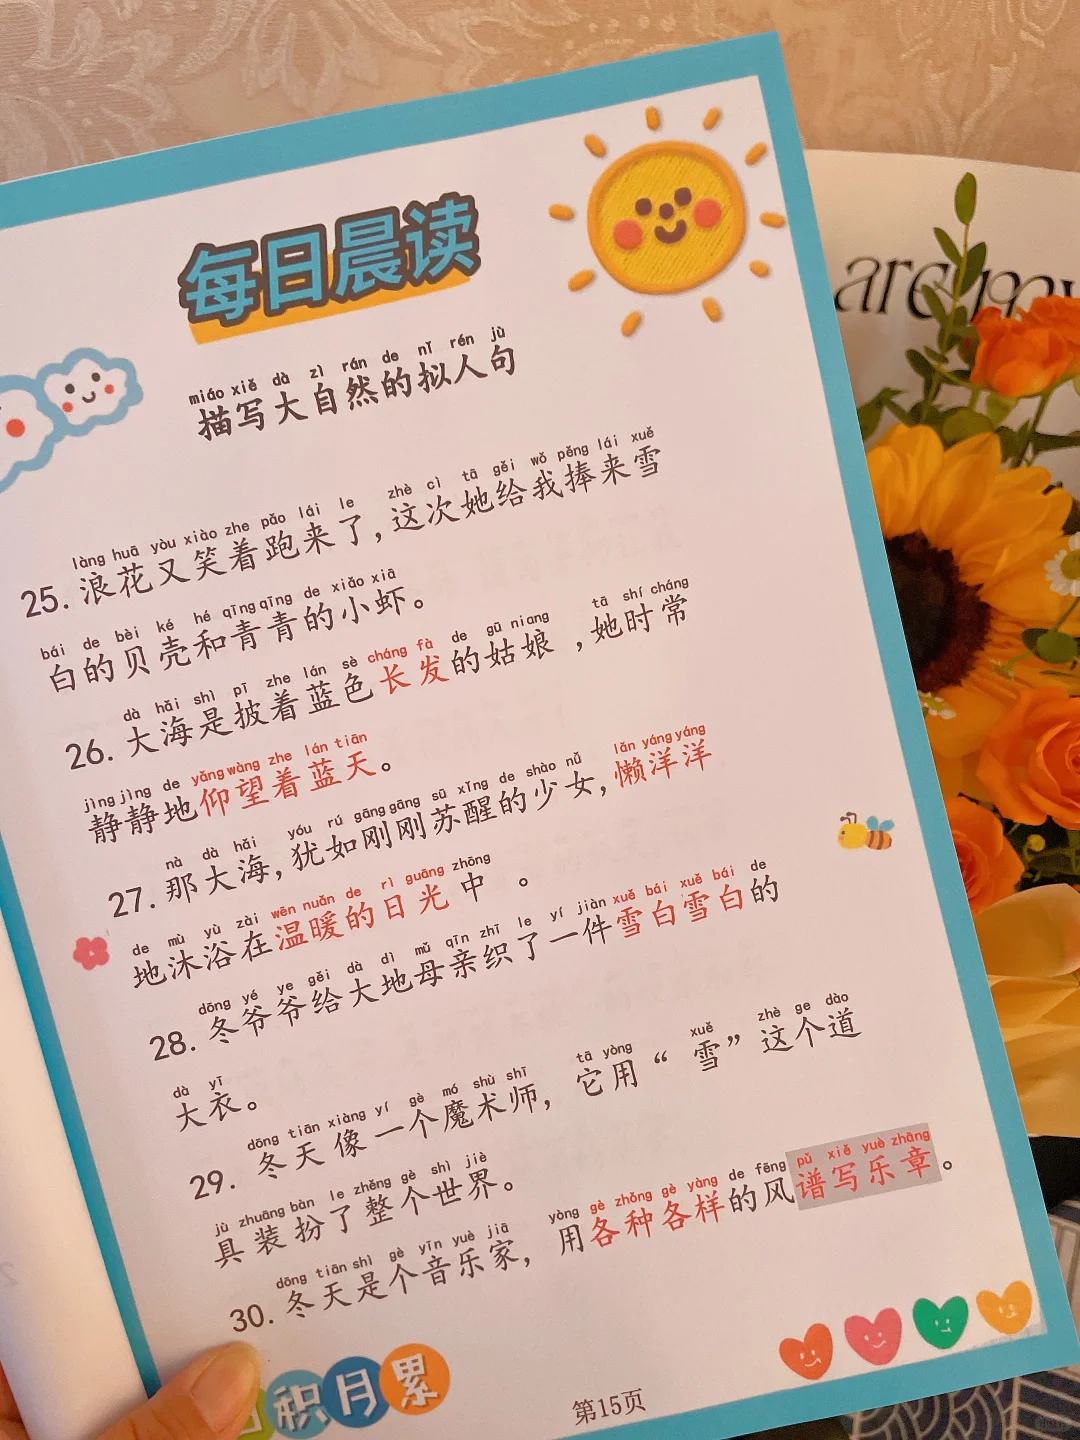 每日晨读
miáo xiě dà zì rán de nǐ rén jù
描写大自然的拟人句
làng huā yòu xiào zhe pǎo lái le zhè cì tā gěi wǒ pěng lái xuě
25. 浪花又笑着跑来了,这次她给我捧来雪
bái de bèi ké hé qīng qīng de xiǎo xiā
白的贝壳和青青的小虾。
dà hǎi shì pī zhe lán sè cháng fà de gū niang tā shí cháng
26. 大海是披着蓝色长发的姑娘,她时常
jìng jìng de yǎng wàng zhe lán tiān
静静地仰望着蓝天。
nà dà hǎi yóu rú gāng gāng sū xǐng de shào nǚ lǎn yáng yáng
27. 那大海,犹如刚刚苏醒的少女,懒洋洋
de mù yù zài wēn nuǎn de rì guāng zhōng
地沐浴在温暖的日光中。
dōng yé ye gěi dà dì mǔ qīn zhī le yí jiàn xuě bái xuě bái de
28. 冬爷爷给大地母亲织了一件雪白雪白的
dà yī
大衣。
dōng tiān xiàng yí gè mó shù shī tā yòng xuě zhè ge dào
29. 冬天像一个魔术师,它用“雪”这个道
jù zhuāng bàn le zhěng gè shì jiè
具装扮了整个世界。
dōng tiān shì gè yīn yuè jiā yòng gè zhǒng gè yàng de fēng pǔ xiě yuè zhāng
30. 冬天是个音乐家,用各种各样的风谱写乐章。
积月累
第15页
are my